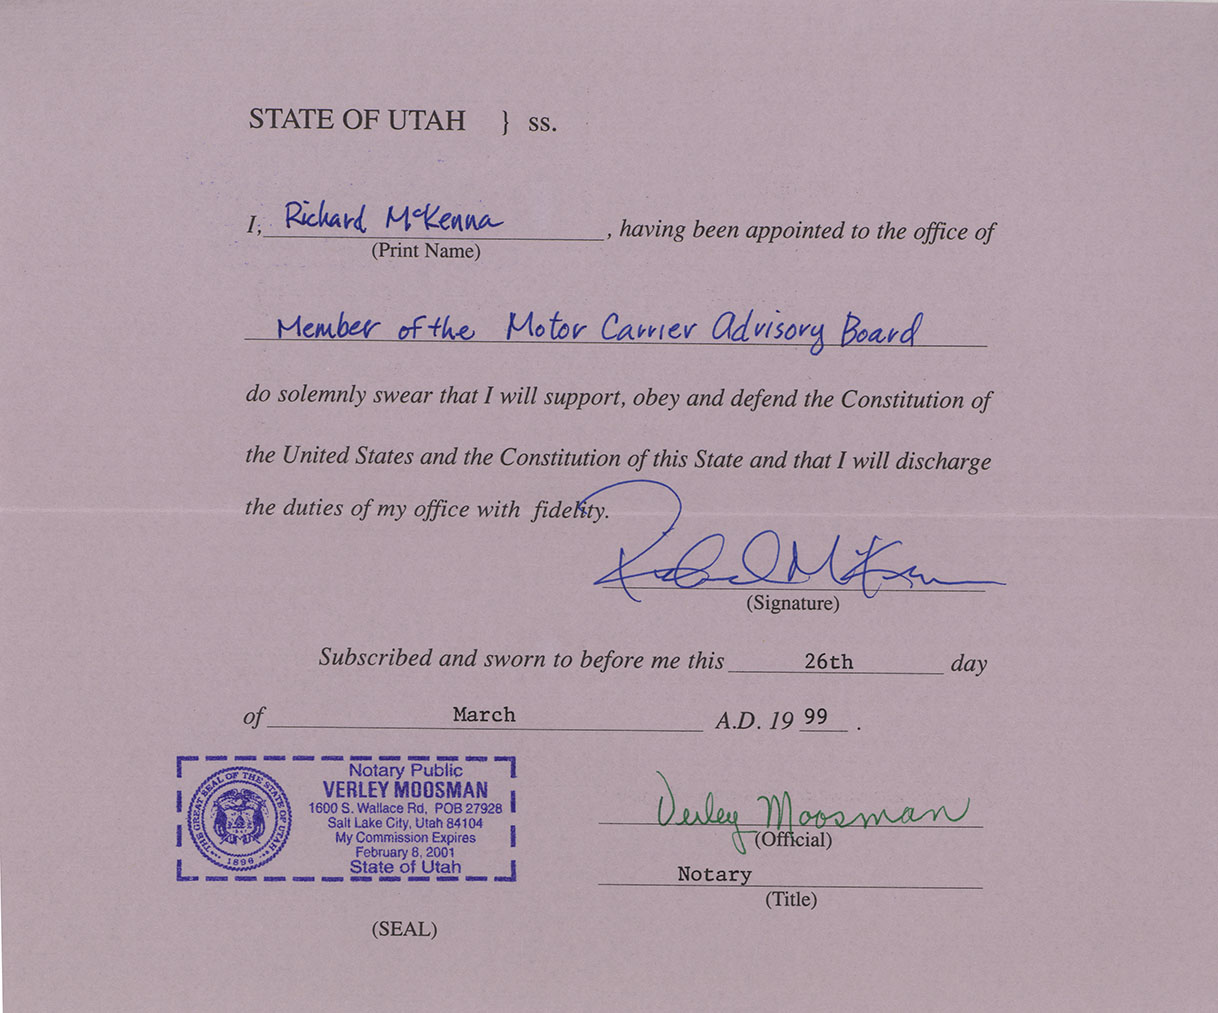 STATE OF UTAH } ss.
I, Richard McKenna, having been appointed to the office of
(Print Name)
Member of the Motor Carrier Advisory Board
do solemnly swear that I will support, obey and defend the Constitution of
the United States and the Constitution of this State and that I will discharge
the duties of my office with fidelity.
Richard McKenna
(Signature)
Subscribed and sworn to before me this 26th day
of March A.D. 19 99 .
THE GREAT SEAL OF THE STATE OF UTAH
1896
Notary Public
VERLEY MOOSMAN
1600 S. Wallace Rd, POB 27928
Salt Lake City, Utah 84104
My Commission Expires
February 8, 2001
State of Utah
(SEAL)
Verley Moosman
(Official)
Notary
(Title)